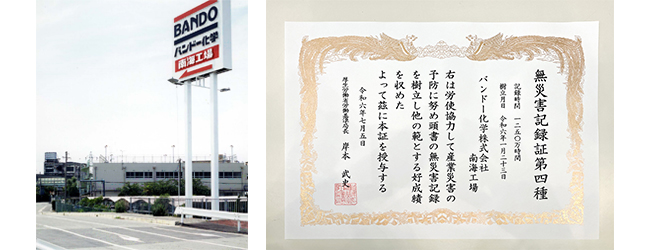 BANDO
バンドー化学
南海工場
無災害記録証第四種
記録時間 一二五〇万時間
樹立月日 令和六年一月二十三日
バンドー化学株式会社
南海工場
右は労使協力して産業災害の
予防に努め頭書の無災害記録
を樹立し他の範とする好成績
を収めた
よって茲に本証を授与する
令和六年七月五日
厚生労働省労働基準局長 岸本 武史